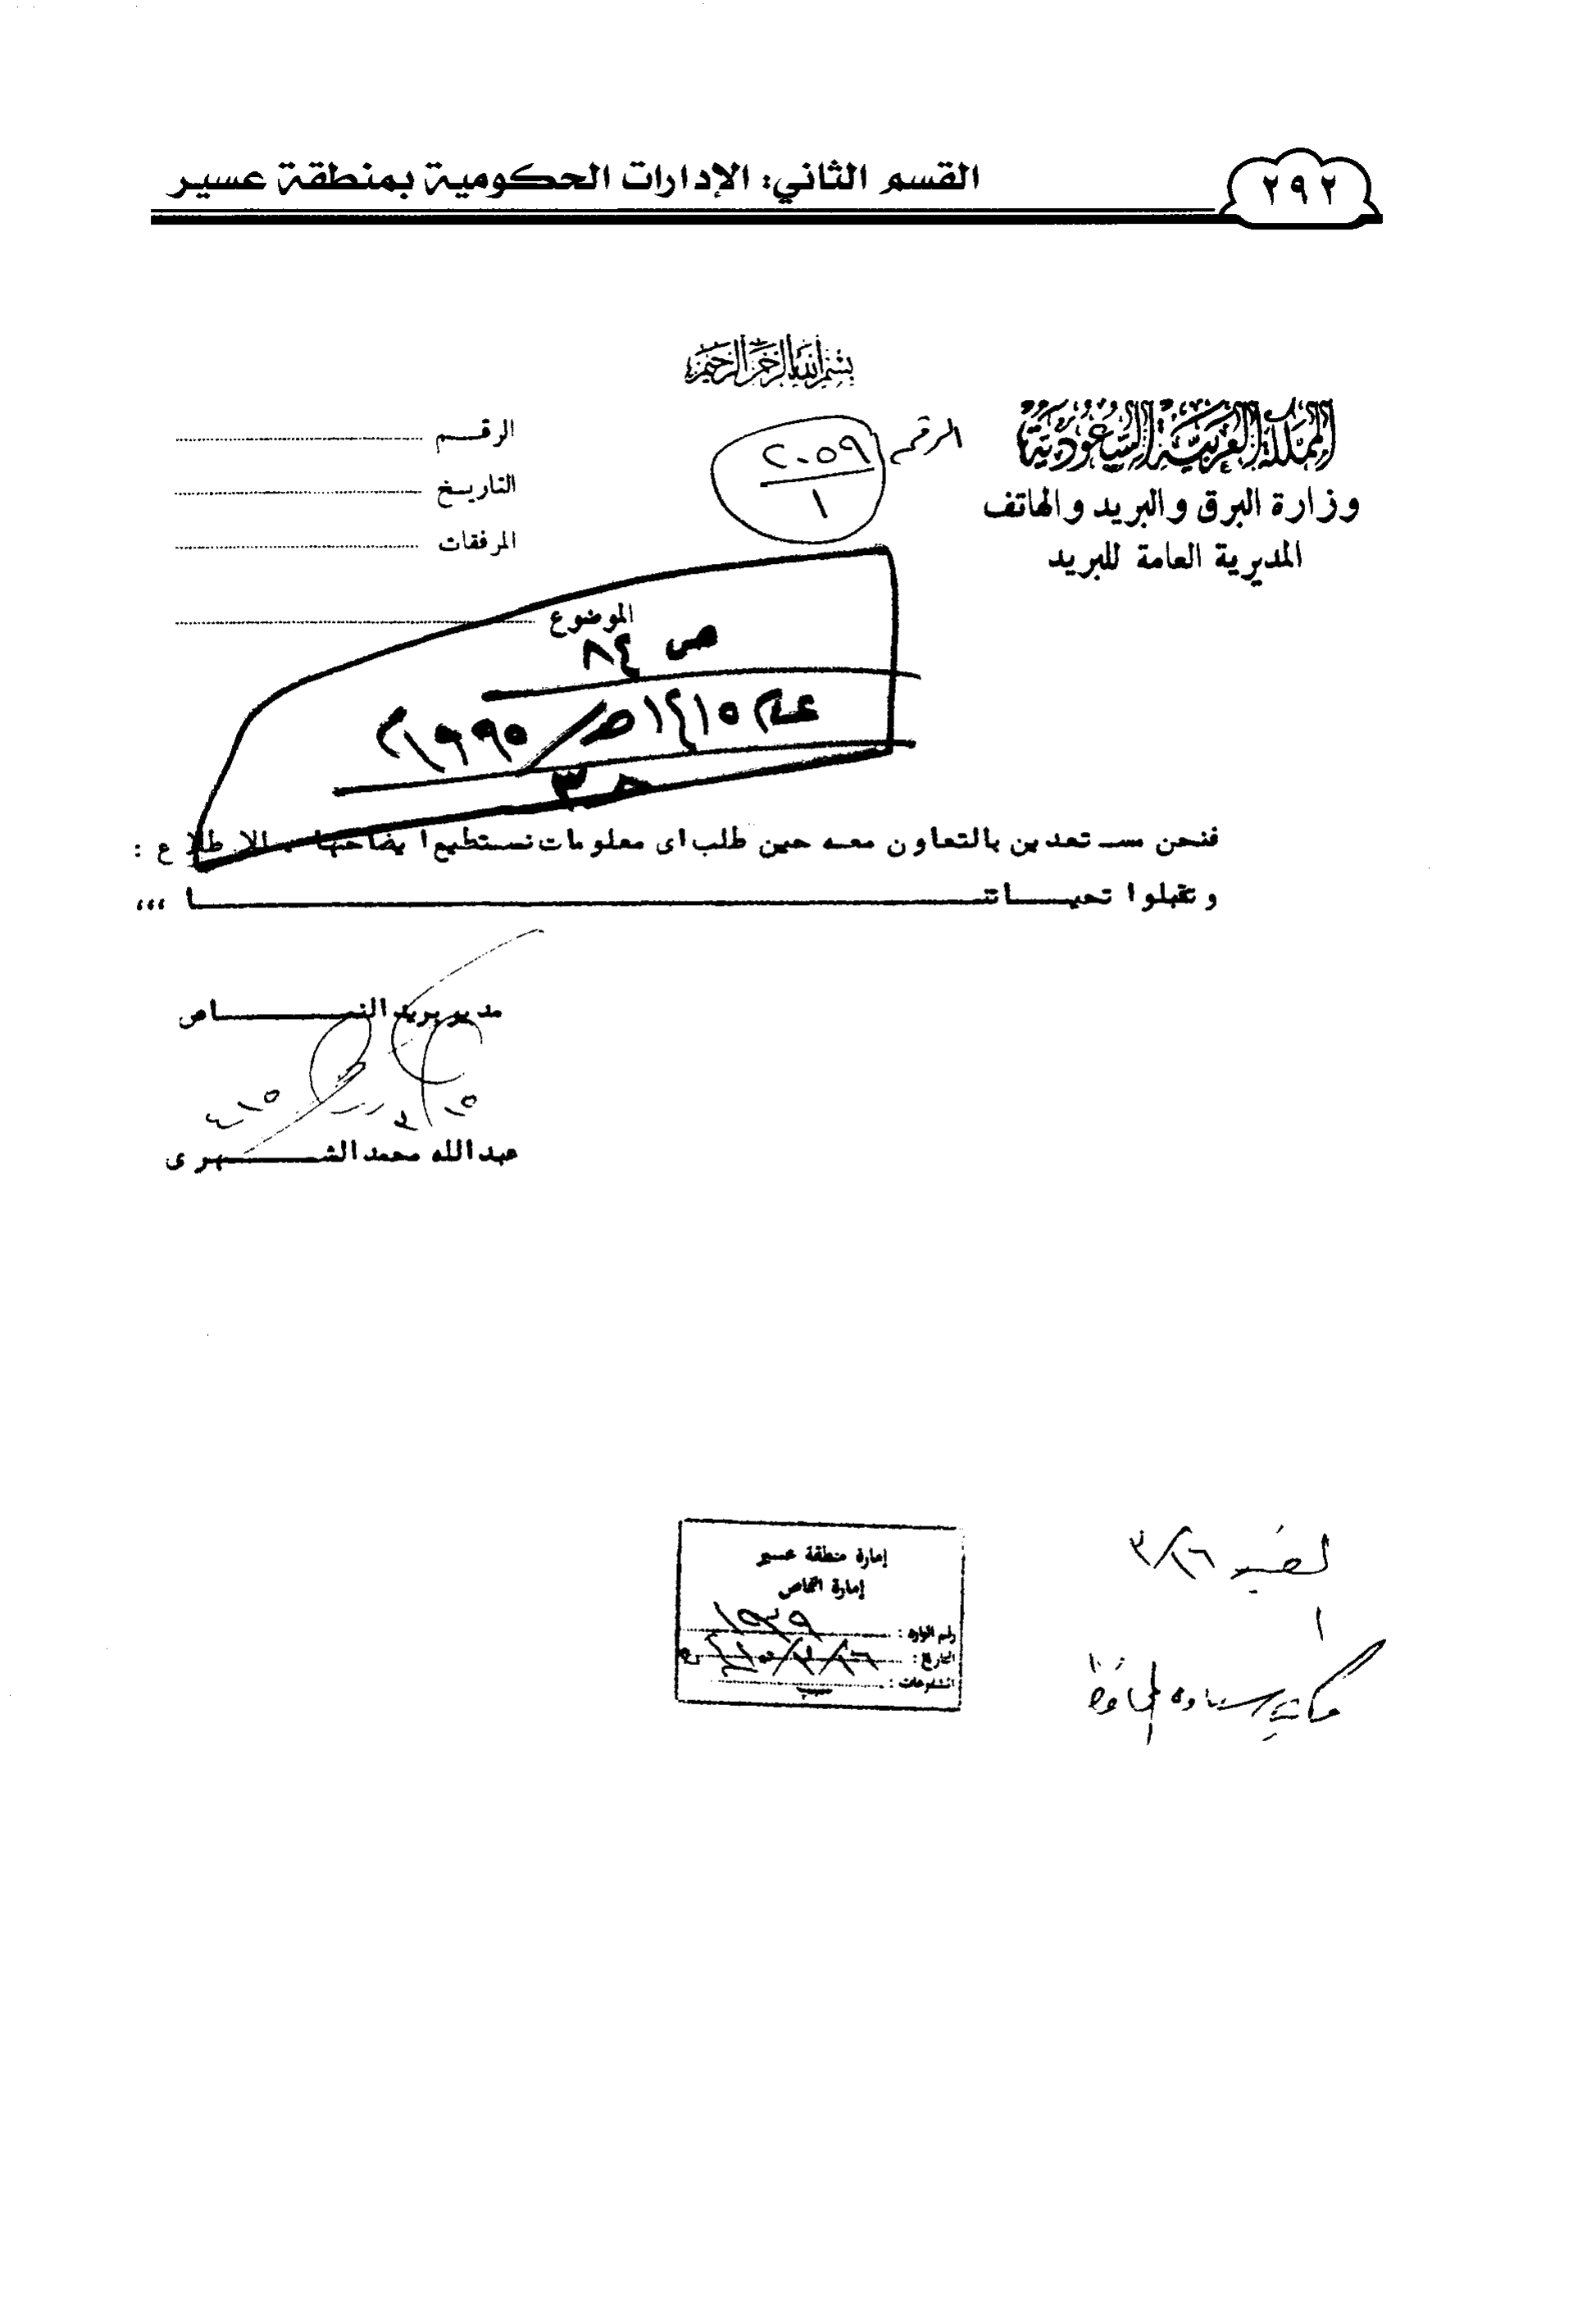 ٢٩٢
القسم الثاني: الإدارات الحكومية بمنطقة عسير
بسم الله الرحمن الرحيم
المملكة العربية السعودية
وزارة البرق والبريد والهاتف
المديرية العامة للبريد
الرقم ٢٠٥٩
١
الرقــم
التاريـخ
المرفقات
الموضوع
ص ٨٤
عام ١٤١٥هـ/١٩٩٥م
حـ٣
فنحن مستعدين بالتعاون معه حين طلب اى معلومات نستطيع ايضاحها للاطلاع :
وتقبلوا تحيــــاتنـــــــــــــا ،،،
مدير بريد النمـــــــاص
عبد الله محمد الشــــــهرى
إمارة منطقة عسير
إمارة النماص
رقم الوارد : ١٩٣٩
التاريخ :
المشفوعات :
٣/٢٦
مكاتبة سعادة المحافظ